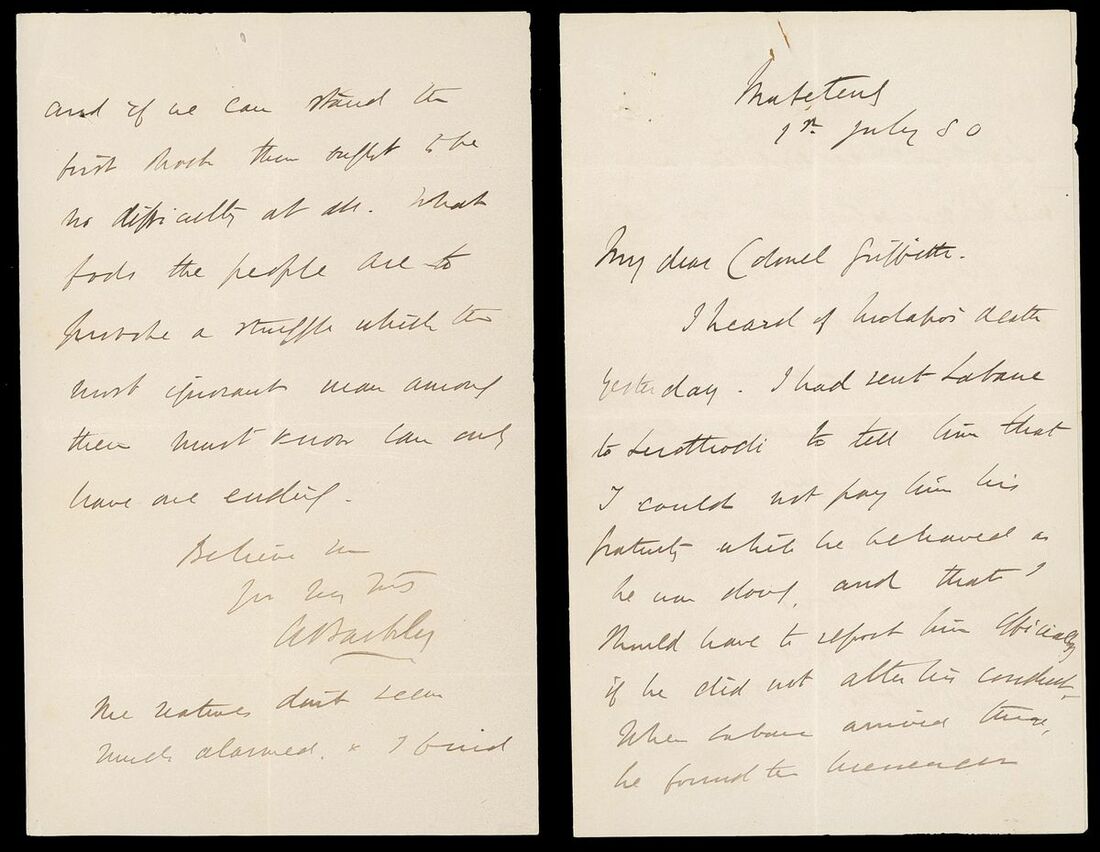 and if we can stand the
first shock there ought to be
no difficulty at all. What
fools the people are to
provoke a struggle which the
most ignorant man among
them must know can only
have one ending.
Believe me
Yrs very truly
A Barkly
The natives don't seem
much alarmed. & I find
Mafeteng
1st July 80
My dear Colonel Griffith.
I heard of Molapo's death
yesterday. I had sent Labane
to Lerothodi to tell him that
I could not pay him his
gratuity while he behaved as
he was doing, and that I
should have to report him officially
if he did not alter his conduct.
When Labane arrived there,
he found the messenger